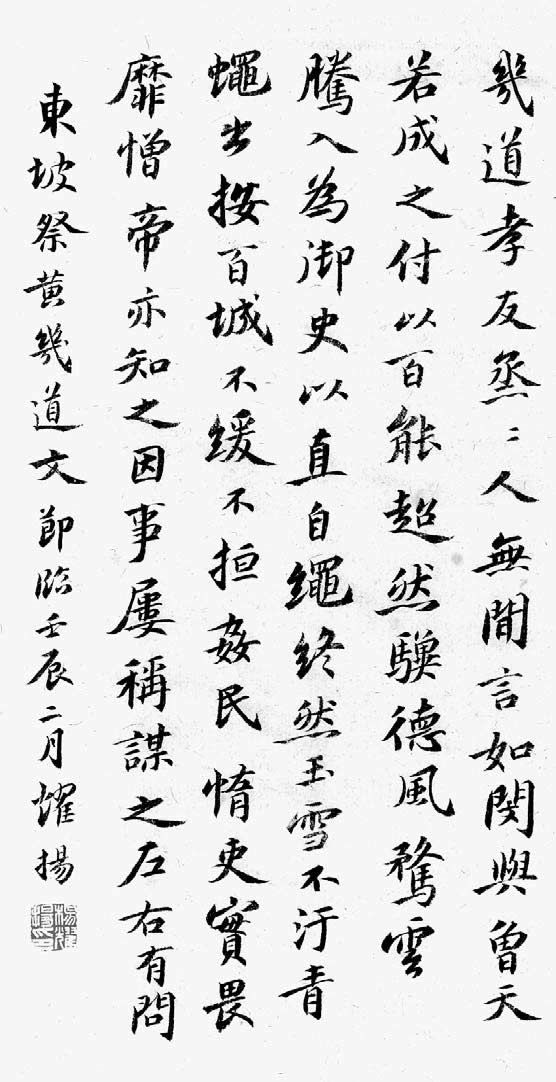 幾道孝友烝〻人無閒言如閔與曾天
若成之付以百能超然驥德風騖雲
騰入為御史以直自繩終然玉雪不汙青
蠅出按百城不緩不姦民惰吏實畏
靡憎帝亦知之因事屢稱謀之左右有問
東坡祭黄幾道文節臨壬辰二月耀揚